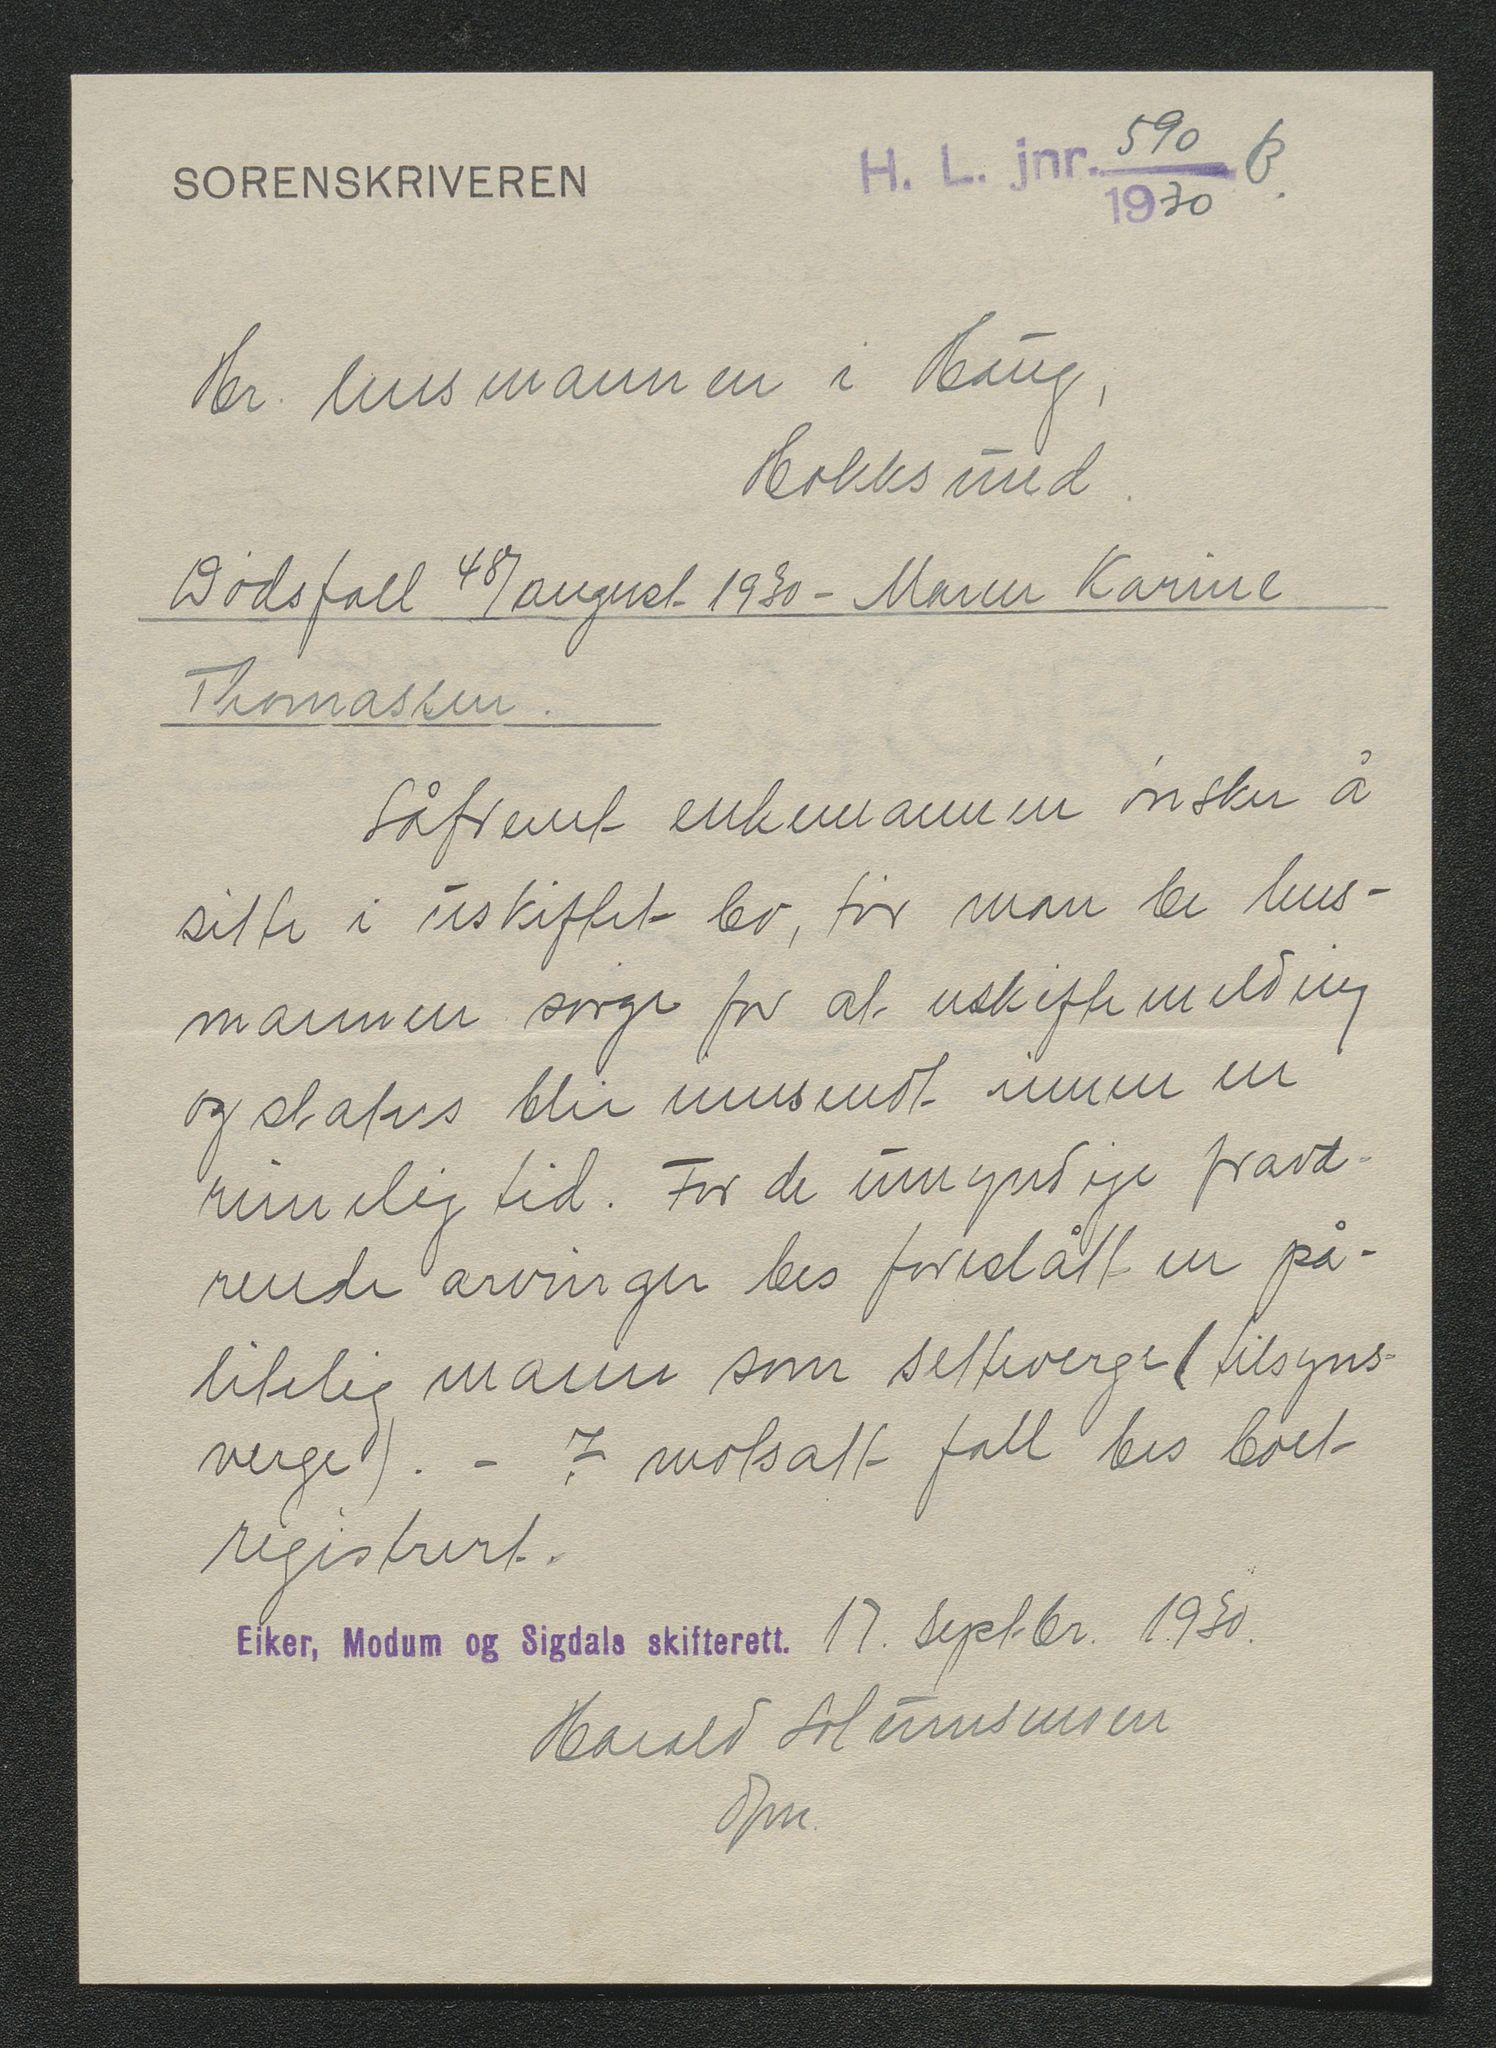 SORENSKRIVEREN
H. L. jnr. 590
1930 B.
Hr. lensmannen i Haug,
Hokksund.
Dødsfall august 1930 - Maren Karine
Thomassen.
Såfremt enkemannen ønsker å
sitte i uskiftet bo, tør man be lens-
mannen sørge for at uskiftemelding
og status blir innsendt innen en
rimelig tid. For de umyndige fravæ-
rende arvinger bes foreslått en på-
litelig mann som setteverge (tilsyns-
verge). - I motsatt fall bes boet
registrert.
Eiker, Modum og Sigdals skifterett. 17. septbr. 1930.
Harald